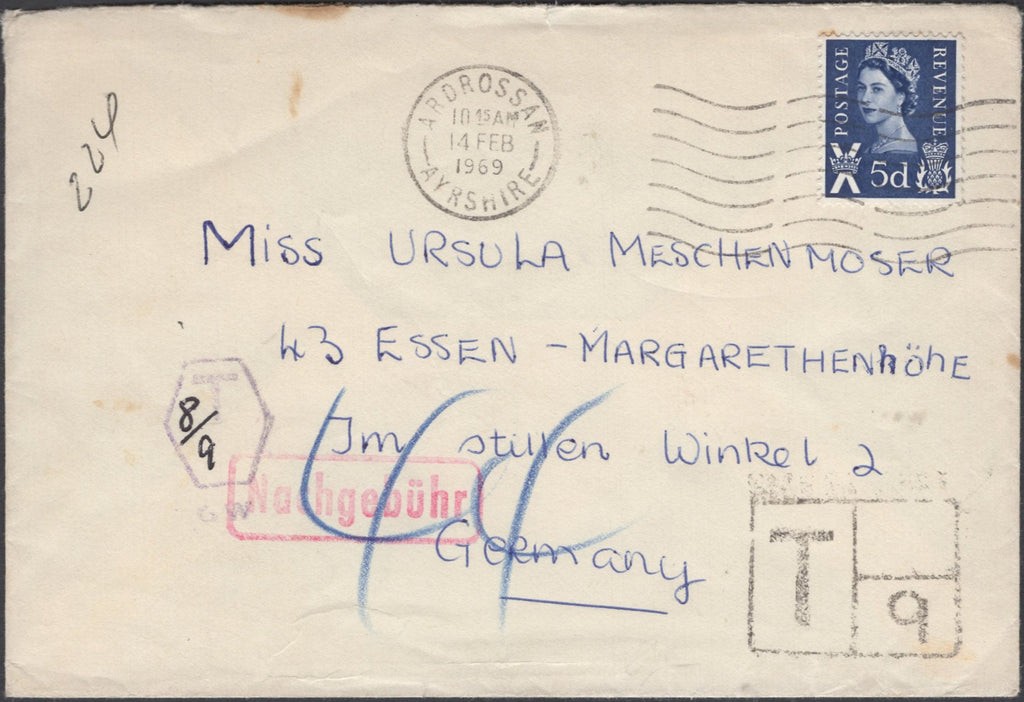 POSTAGE REVENUE
5d
ARDROSSAN
10 15 AM
14 FEB
1969
AYRSHIRE
224
Miss URSULA MESCHENMOSER
43 ESSEN - MARGARETHENhöhE
Im stillen Winkel 2
Germany
T
8/9
GW
Nachgebühr
44
T
9